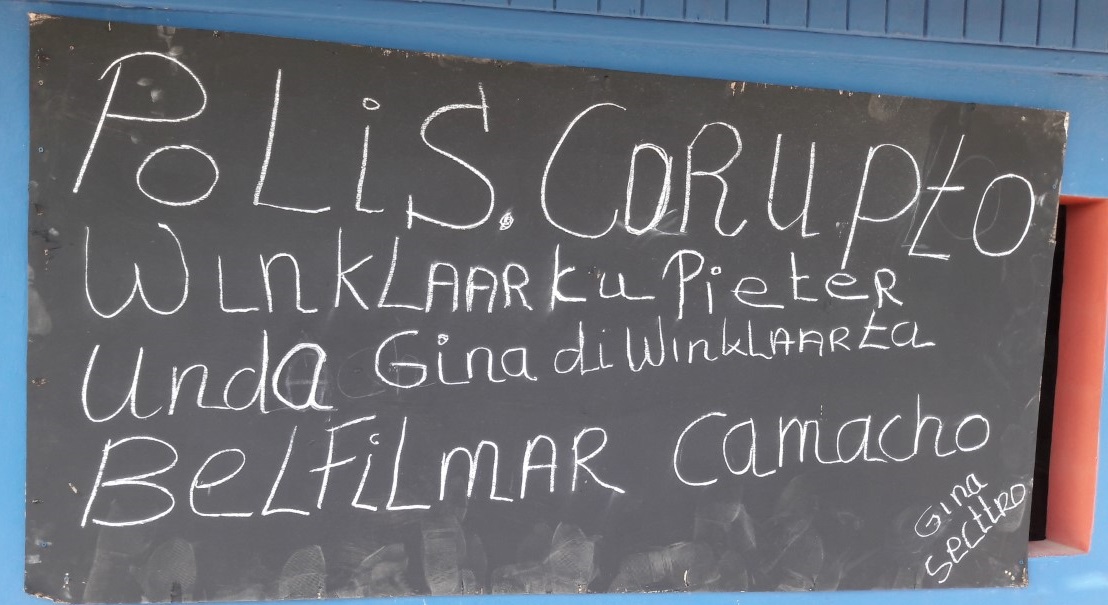 PoLiS. CORUPtO
WINKLAAR ku PieteR
Unda Gina di WINKLAAR ta
BeLFiLMAR Camacho
Gina
Secttro